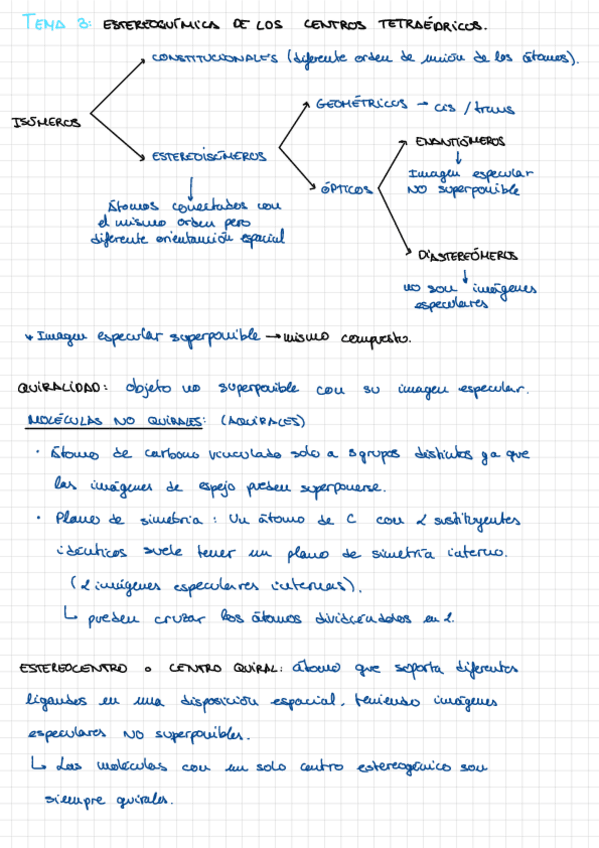 TEMA 3: ESTEREOQUÍMICA DE LOS CENTROS TETRAÉDRICOS.
CONSTITUCIONALES (diferente orden de unión de los átomos).
GEOMÉTRICOS → cis / trans
ISÓMEROS
ENANTIÓMEROS
ESTEREOISÓMEROS
Imagen especular
NO superponible
ÓPTICOS
Átomos conectados con
el mismo orden pero
diferente orientación espacial
DIASTEREÓMEROS
no son imágenes
especulares
* Imagen especular superponible → mismo compuesto.
QUIRALIDAD: objeto no superponible con su imagen especular.
MOLÉCULAS NO QUIRALES: (AQUIRALES)
· Átomo de carbono vinculado solo a 3 grupos distintos ya que
las imágenes de espejo pueden superponerse.
· Plano de simetria: Un átomo de C con 2 sustituyentes
idénticos suele tener un plano de simetría interno.
(2 imágenes especulares internas).
↳ pueden cruzar los átomos dividiéndolos en 2.
ESTEREOCENTRO o CENTRO QUIRAL: átomo que soporta diferentes
ligandos en una disposición espacial, teniendo imágenes
especulares NO superponibles.
↳ Las moléculas con un solo centro estereogénico son
siempre quirales.